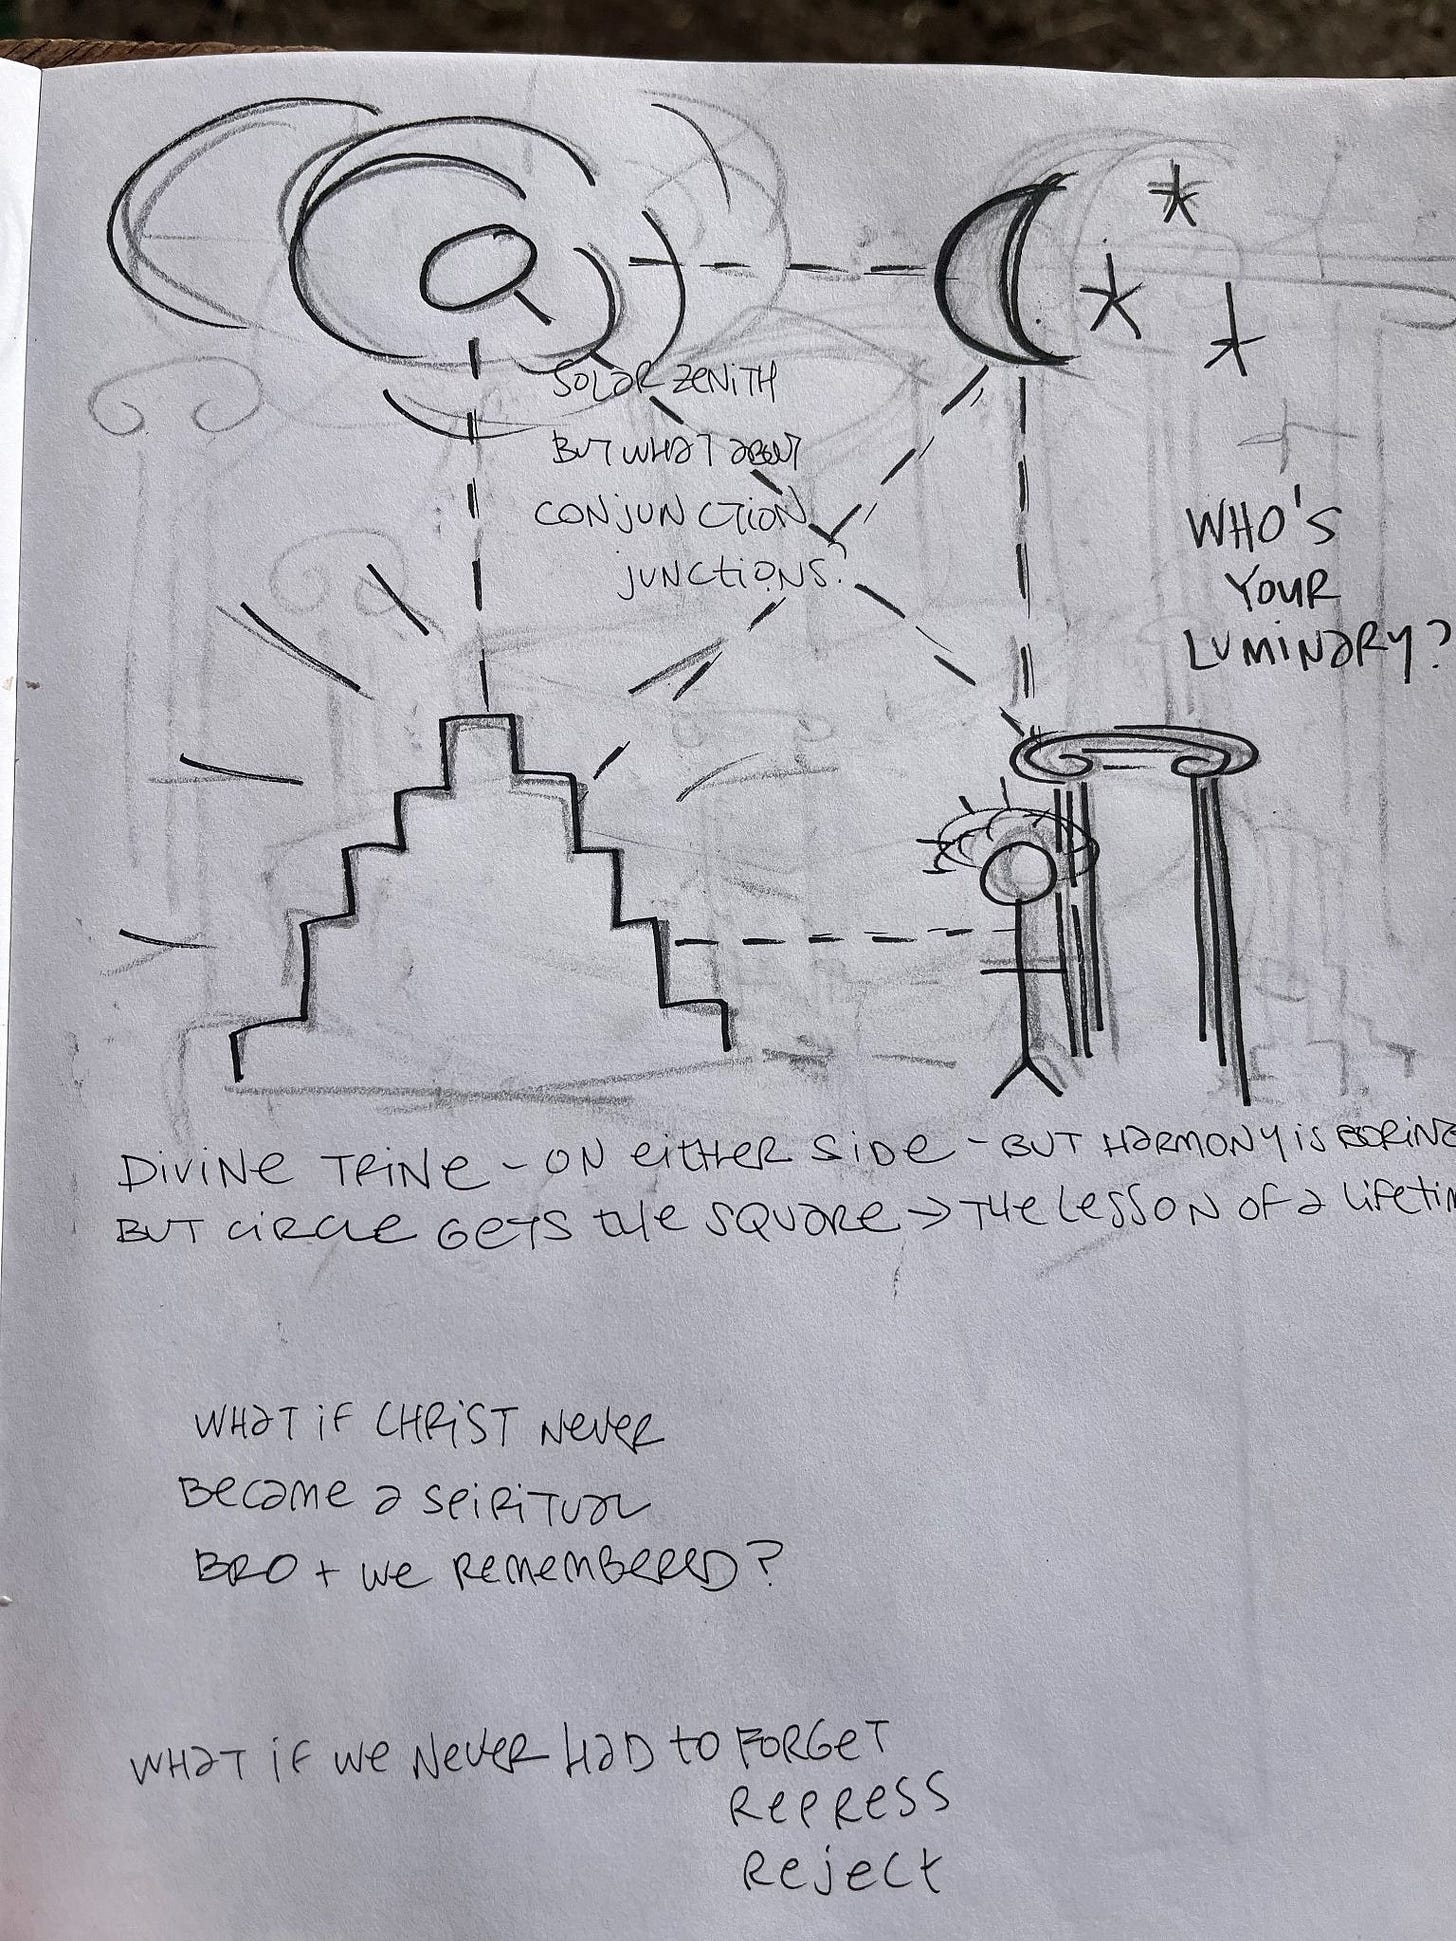 SOLAR ZENITH
BUT WHAT ABOUT
CONJUNCTION
JUNCTIONS?
WHO'S
YOUR
LUMINARY?
DIVINE TRINE - ON EITHER SIDE - BUT HARMONY IS BORING
BUT CIRCLE GETS THE SQUARE → THE LESSON OF A LIFETIM
WHAT IF CHRIST NEVER
BECAME A SPIRITUAL
BRO + WE REMEMBERED?
WHAT IF WE NEVER HAD TO FORGET
REPRESS
REJECT